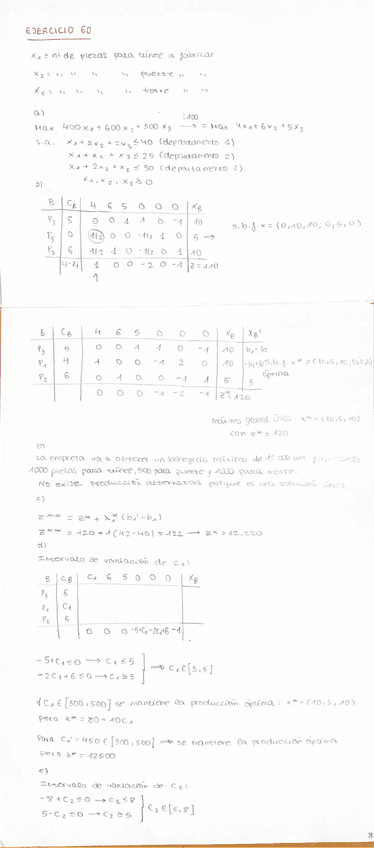 EJERCICIO 60
x₁ = nº de piezas para túnel a fabricar
x₂ = " " " " puente " "
x₃ = " " " " torre " "
a)
:100
Max 400x₁ + 600x₂ + 500x₃ → = Max 4x₁+6x₂+5x₃
s.a. x₁+2x₂+2x₃ ≤ 40 (departamento 1)
x₁+x₂+x₃ ≤ 25 (departamento 2)
x₁+2x₂+x₃ ≤ 30 (departamento 3)
x₁, x₂, x₃ ≥ 0
b)
B C_B 4 6 5 0 0 0 X_B
P₃ 5 0 0 1 1 0 -1 10
P₅ 0 1/2 0 0 -1/2 1 0 5 →
s.b.f x = (0,10,10,0,5,0)
P₂ 6 1/2 1 0 -1/2 0 1 10
1 0 0 -2 0 -1 z=110
↑
B C_B 4 6 5 0 0 0 X_B X_B'
P₃ 5 0 0 1 1 0 -1 10 b₁-30
P₁ 4 1 0 0 -1 2 0 10
óptima
P₂ 6 0 1 0 0 -1 1 5 5
0 0 0 -1 -2 -1 z*=120
máximo global único: x* = (10,5,10)
con z* = 120
b)
La empresa va a obtener un beneficio máximo de 12.000 um. fabricando
1000 piezas para túnel, 500 para puente y 1000 para torre.
No existe producción alternativa porque es una solución única
c)
z** = z* + λ₁*(b₁'-b₁)
z** = 120+1(42-40) = 122 → z* = 12.220
d)
Intervalo de variación de C₁:
B C_B C₁ 6 5 0 0 0 X_B
P₃ 5
P₁ C₁
P₂ 6
0 0 0 -5+C₁ -2C₁+6 -1
-5+C₁ ≤ 0 → C₁ ≤ 5
-2C₁+6 ≤ 0 → C₁ ≥ 3
→ C₁ ∈ [3,5]
∀ C₁ ∈ [300,500] se mantiene la producción óptima: x* = (10,5,10)
pero z* = 80+10C₁
Para C₁' = 450 ∈ [300,500] → se mantiene la producción óptima
pero z* = 12500
e)
Intervalo de variación de C₂:
-8+C₂ ≤ 0 → C₂ ≤ 8
5-C₂ ≤ 0 → C₂ ≥ 5
C₂ ∈ [5,8]